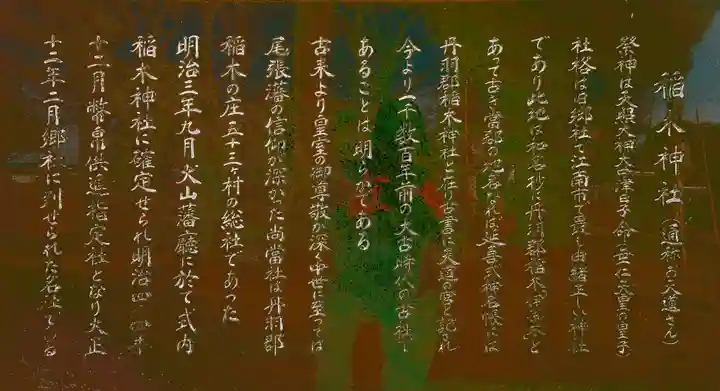 稲木神社（通称お天道さん）
祭神は大縣大神大中津日子命（垂仁天皇の皇子）
社格は旧郷社で江南市で最も由緒正しい神社
であり此地は和名抄に丹羽郡稲木伊奈木と
あって古き當郡の地名なれば延喜式神名帳には
丹羽郡稲木神社と有り古書に天道の宮と記され
今より一千数百年前の太古時代の古社で
あることは明らかである
古来より皇室の御尊敬が深く中世に至っては
尾張藩の信仰が深かった尚當社は丹羽郡
稲木の庄五十三ヶ村の総社であった
明治三年九月犬山藩廳に於て式内
稲木神社に確定せられ明治四十年
十二月幣帛供進指定社となり大正
十二年二月郷社に列せられた名社である